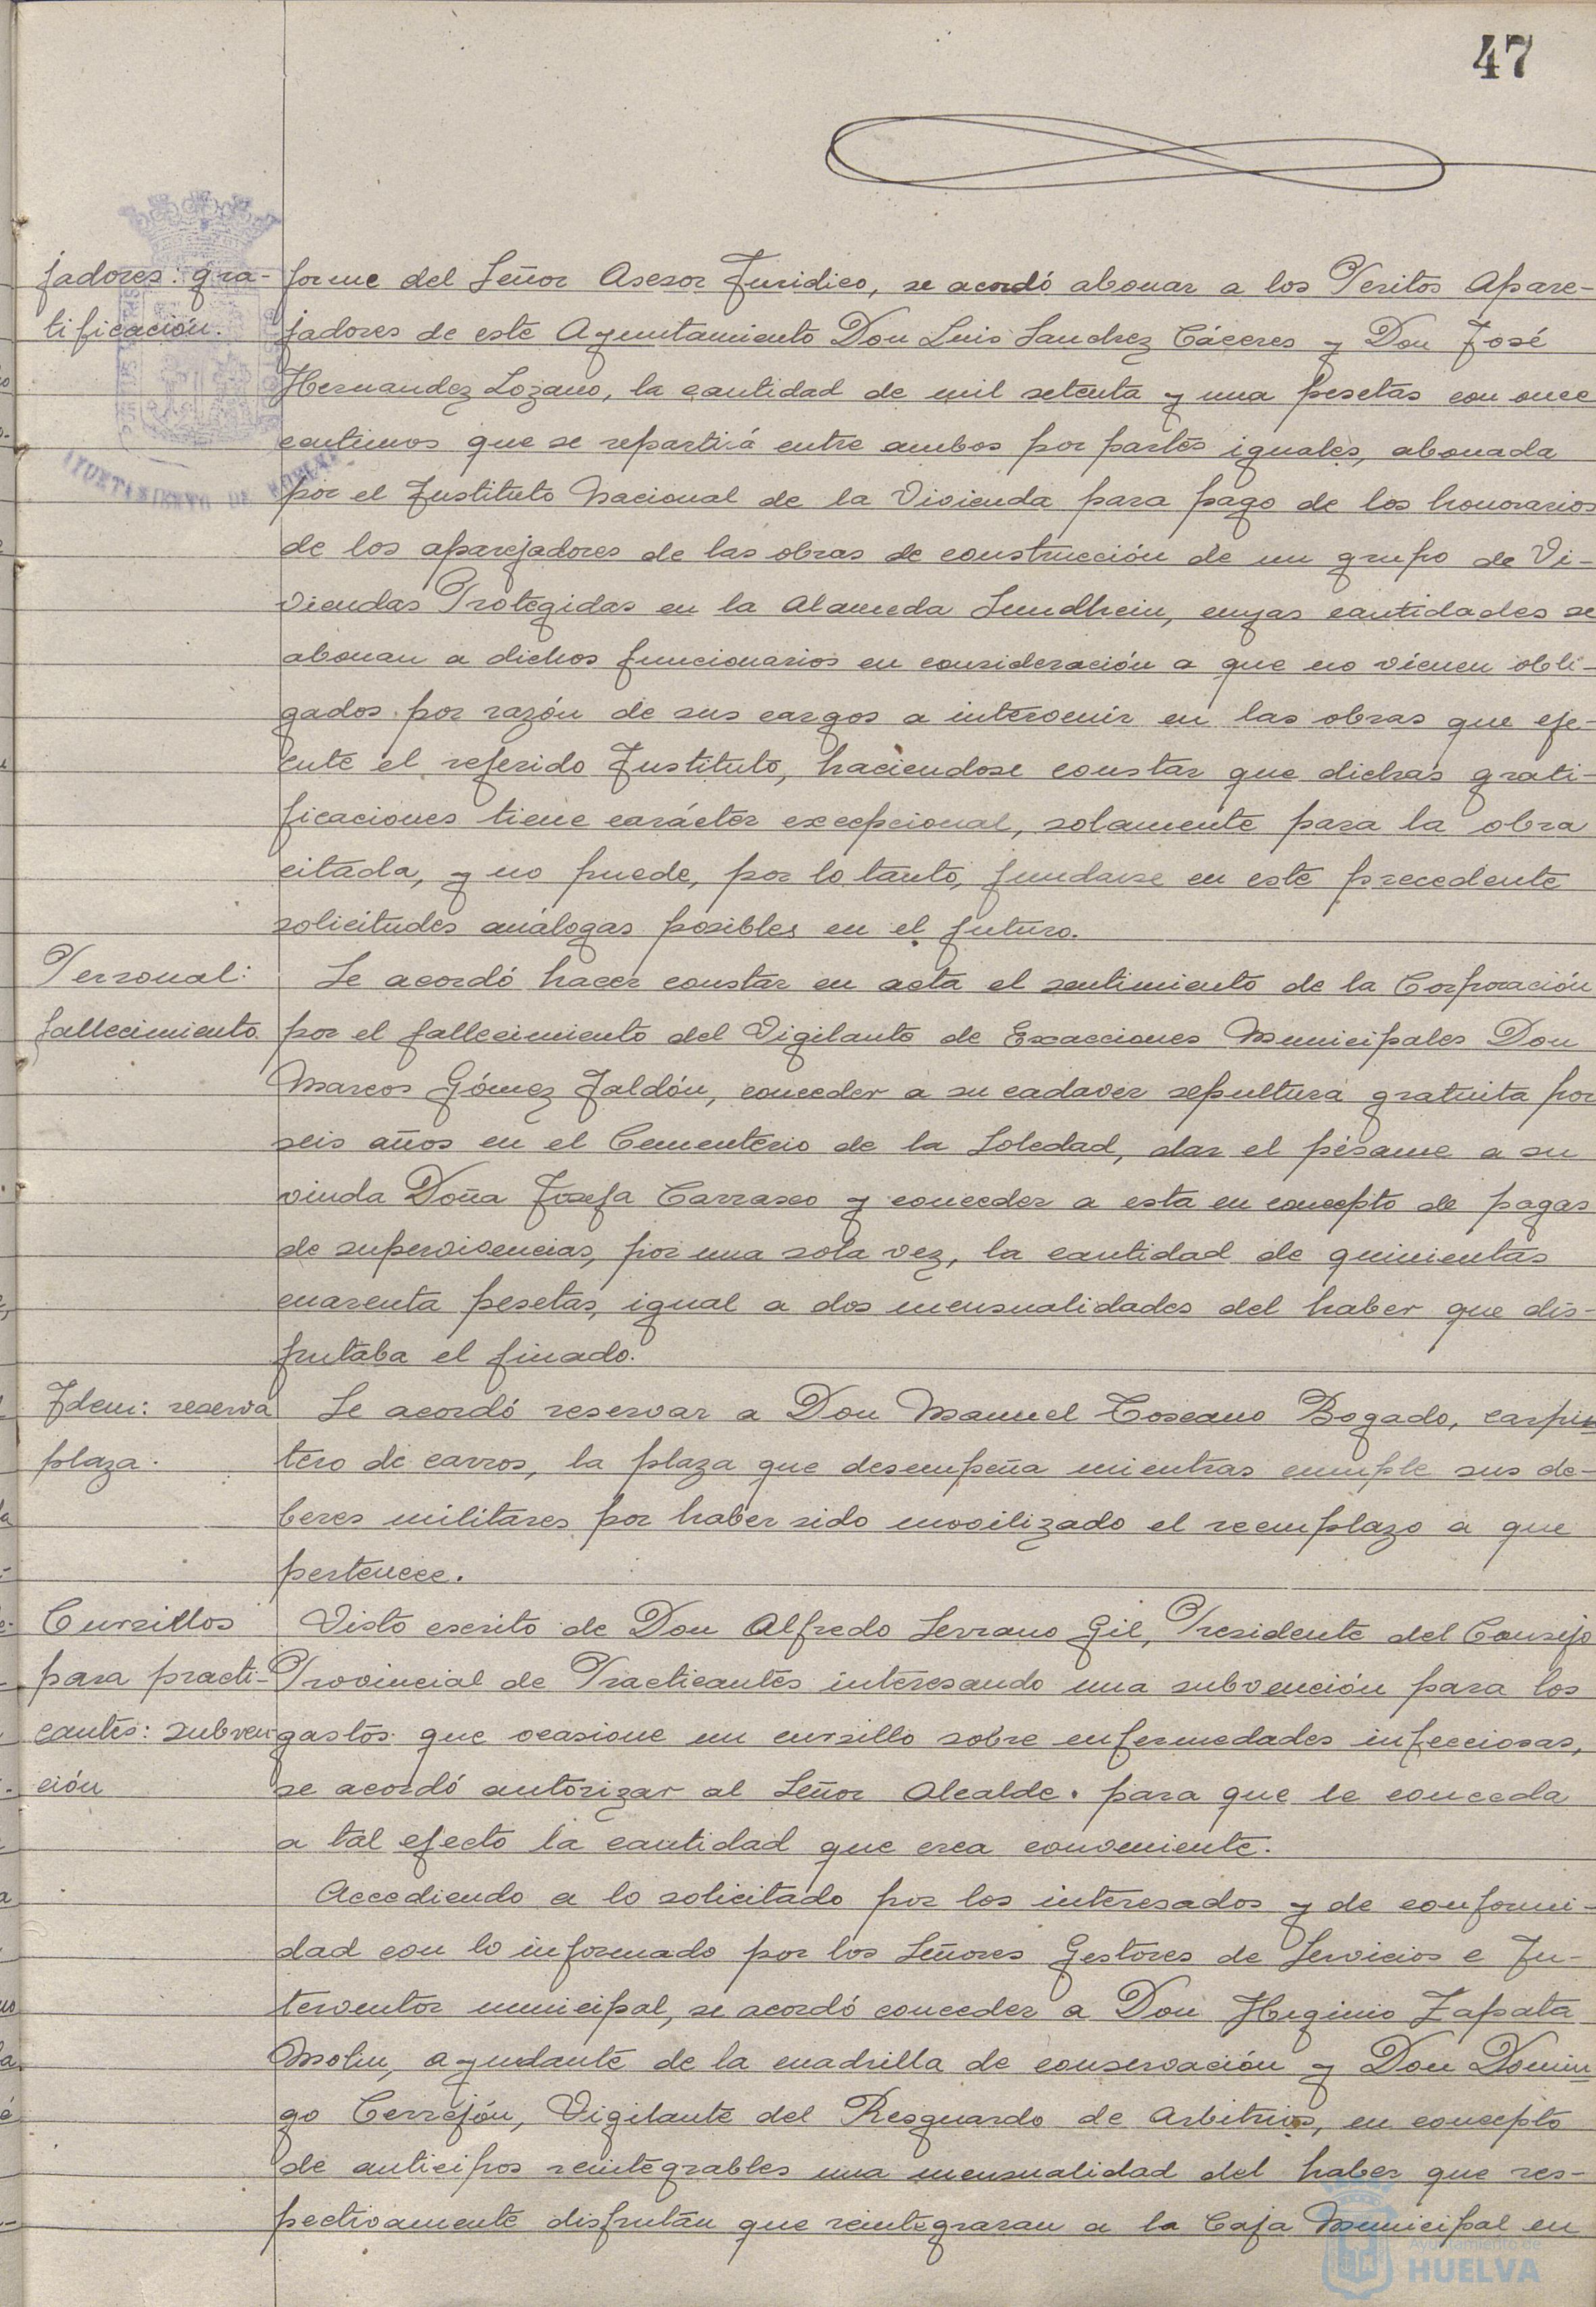 47
jadores: gra-
tificación.
forme del Señor Asesor Juridico, se acordó abonar a los Peritos Apare-
jadores de este Ayuntamiento Don Luis Sanchez Cáceres y Don José
Hernandez Lozano, la cantidad de mil setenta y una pesetas con once
centimos que se repartirá entre ambos por partes iguales, abonada
por el Instituto Nacional de la Vivienda para pago de los honorarios
de los aparejadores de las obras de construcción de un grupo de Vi-
viendas Protegidas en la Alameda Sundhein, cuyas cantidades se
abonan a dichos funcionarios en consideración a que no vienen obli-
gados por razón de sus cargos a intervenir en las obras que eje-
cute el referido Instituto, haciendose constar que dichas grati-
ficaciones tiene carácter excepcional, solamente para la obra
citada, y no puede, por lo tanto, fundarse en este precedente
solicitudes análogas posibles en el futuro.
Personal:
fallecimiento.
Se acordó hacer constar en acta el sentimiento de la Corporación
por el fallecimiento del Vigilante de Exacciones Municipales Don
Marcos Gómez Jaldón, conceder a su cadaver sepultura gratuita por
seis años en el Cementerio de la Soledad, dar el pésame a su
viuda Doña Josefa Carrasco y conceder a esta en concepto de pagas
de supervivencias, por una sola vez, la cantidad de quinientas
cuarenta pesetas, igual a dos mensualidades del haber que dis-
frutaba el finado.
Idem: reserva
plaza.
Se acordó reservar a Don Manuel Toscano Bogado, carpin
tero de carros, la plaza que desempeña mientras cumple sus de-
beres militares por haber sido movilizado el reemplazo a que
pertenece.
Cursillos
para practi-
cantes: subven
ción
Visto escrito de Don Alfredo Serrano Gil, Presidente del Consejo
Provincial de Practicantes interesando una subvención para los
gastos que ocasione un cursillo sobre enfermedades infecciosas,
se acordó autorizar al Señor Alcalde. para que le conceda
a tal efecto la cantidad que crea conveniente.
Accediendo a lo solicitado por los interesados y de conformi-
dad con lo informado por los Señores Gestores de Servicios e In-
terventor municipal, se acordó conceder a Don Higinio Zapata
Molin, ayudante de la cuadrilla de conservación y Don Domin
go Cerrejón, Vigilante del Resguardo de Arbitrios, en concepto
de anticipos reintegrables una mensualidad del haber que res-
pectivamente disfrutan que reintegraran a la Caja Municipal en
AYUNTAMIENTO DE HUELVA
Ayuntamiento de
HUELVA